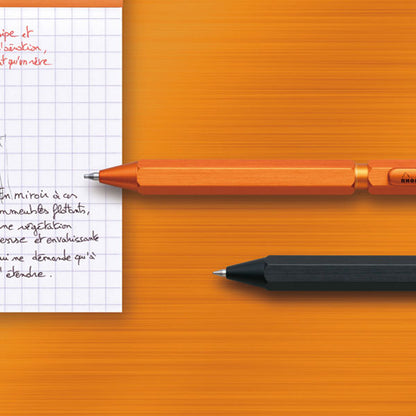 ipe et
l'aération,
t qu'on rêve
En miroir à ces
mmeubles flottants,
ne végétation
euse et envahissante
ui ne demande qu'à
s'étendre.
RHO